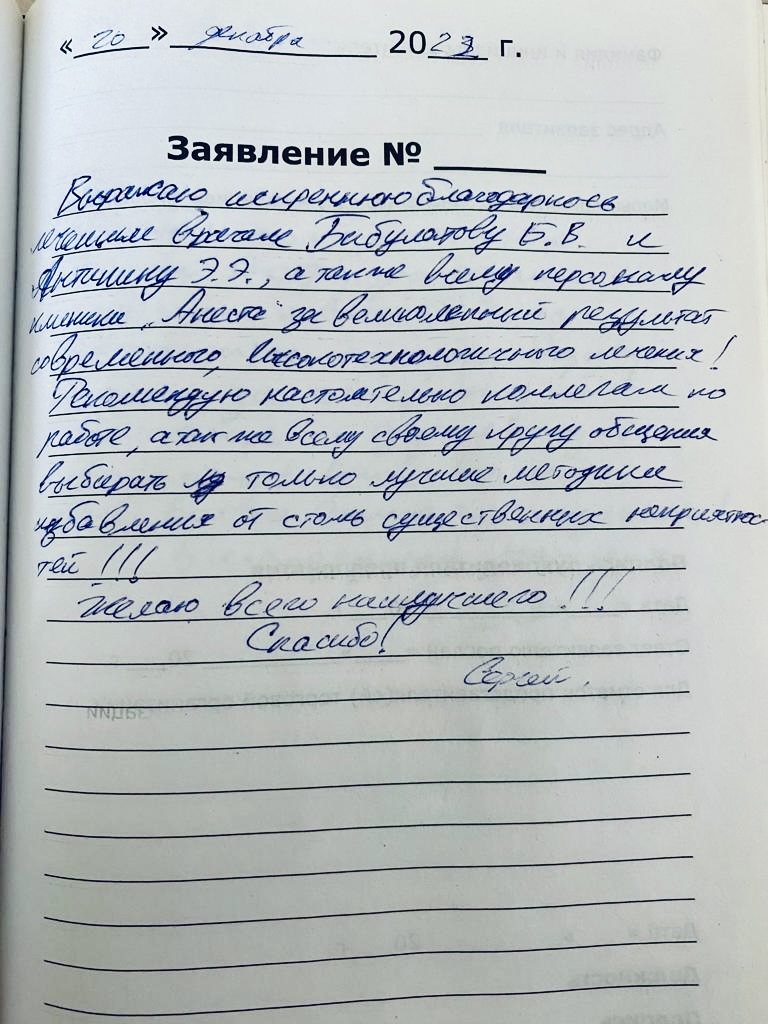 « 20 » декабря 2023 г.
Заявление № ______
Выражаю искреннюю благодарность
лечащим врачам Бибулатову Б.В. и
Антипину Э.Э., а также всему персоналу
клиники „Анеста" за великолепный результат
современного, высокотехнологичного лечения!
Рекомендую настоятельно коллегам по
работе, а так же всему своему кругу общения
выбирать только лучшие методики
избавления от столь существенных неприятнос-
тей !!!
Желаю всего наилучшего !!!
Спасибо!
Сергей.